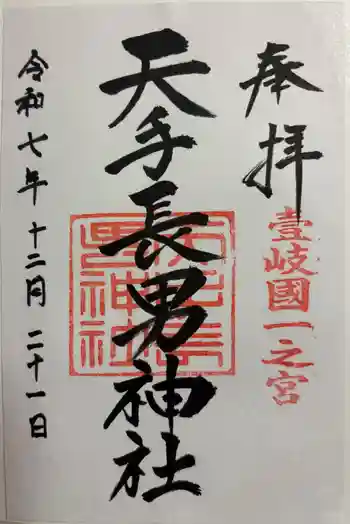 奉拝
壹岐國一之宮
天手長男神社
令和七年十二月二十一日